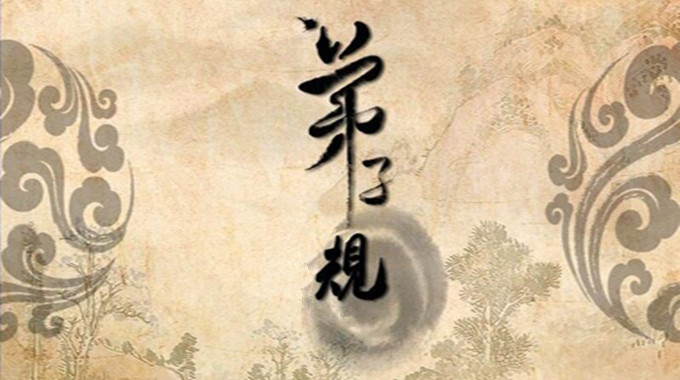 弟子規